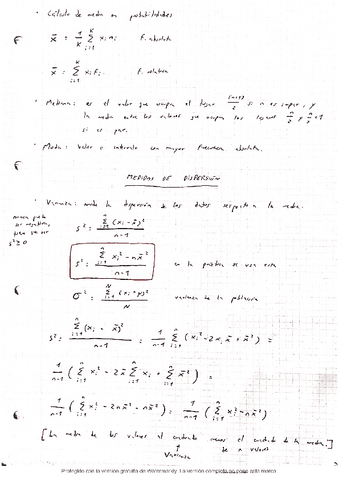 · Cálculo de media en probabilidades
x̄ = 1/K Σ_{i=1}^{K} x_i n_i F. absoluta
x̄ = Σ_{i=1}^{K} x_i F_i F. relativa
· Mediana: es el valor que ocupa el lugar (n+1)/2 si n es impar, y
la media entre los valores que ocupan los lugares n/2 y n/2 + 1
si es par.
· Moda: Valor o intervalo con mayor frecuencia absoluta.
MEDIDAS DE DISPERSIÓN
· Varianza: mide la dispersión de los datos respecto a la media.
nunca puede
ser negativa,
s² ≥ 0
s² = Σ_{i=1}^{n} (x_i - x̄)² / n-1
s² = Σ_{i=1}^{n} x_i² - n x̄² / n-1 en la práctica se usa esta
σ² = Σ_{i=1}^{N} (x_i - μ)² / N varianza de la población
s² = Σ_{i=1}^{n} (x_i - x̄)² / n-1 = 1/n-1 Σ_{i=1}^{n} (x_i² - 2x_i x̄ + x̄²) =
1/n-1 ( Σ_{i=1}^{n} x_i² - 2x̄ Σ_{i=1}^{n} x_i + Σ_{i=1}^{n} x̄² ) =
1/n-1 ( Σ_{i=1}^{n} x_i² - 2n x̄² + n x̄² ) = 1/n-1 ( Σ_{i=1}^{n} x_i² - n x̄² )
[La media de los valores al cuadrado menos el cuadrado de la media.]
Varianza de n valores
Protegido con la versión gratuita de Watermarkly. La versión completa no pone esta marca.